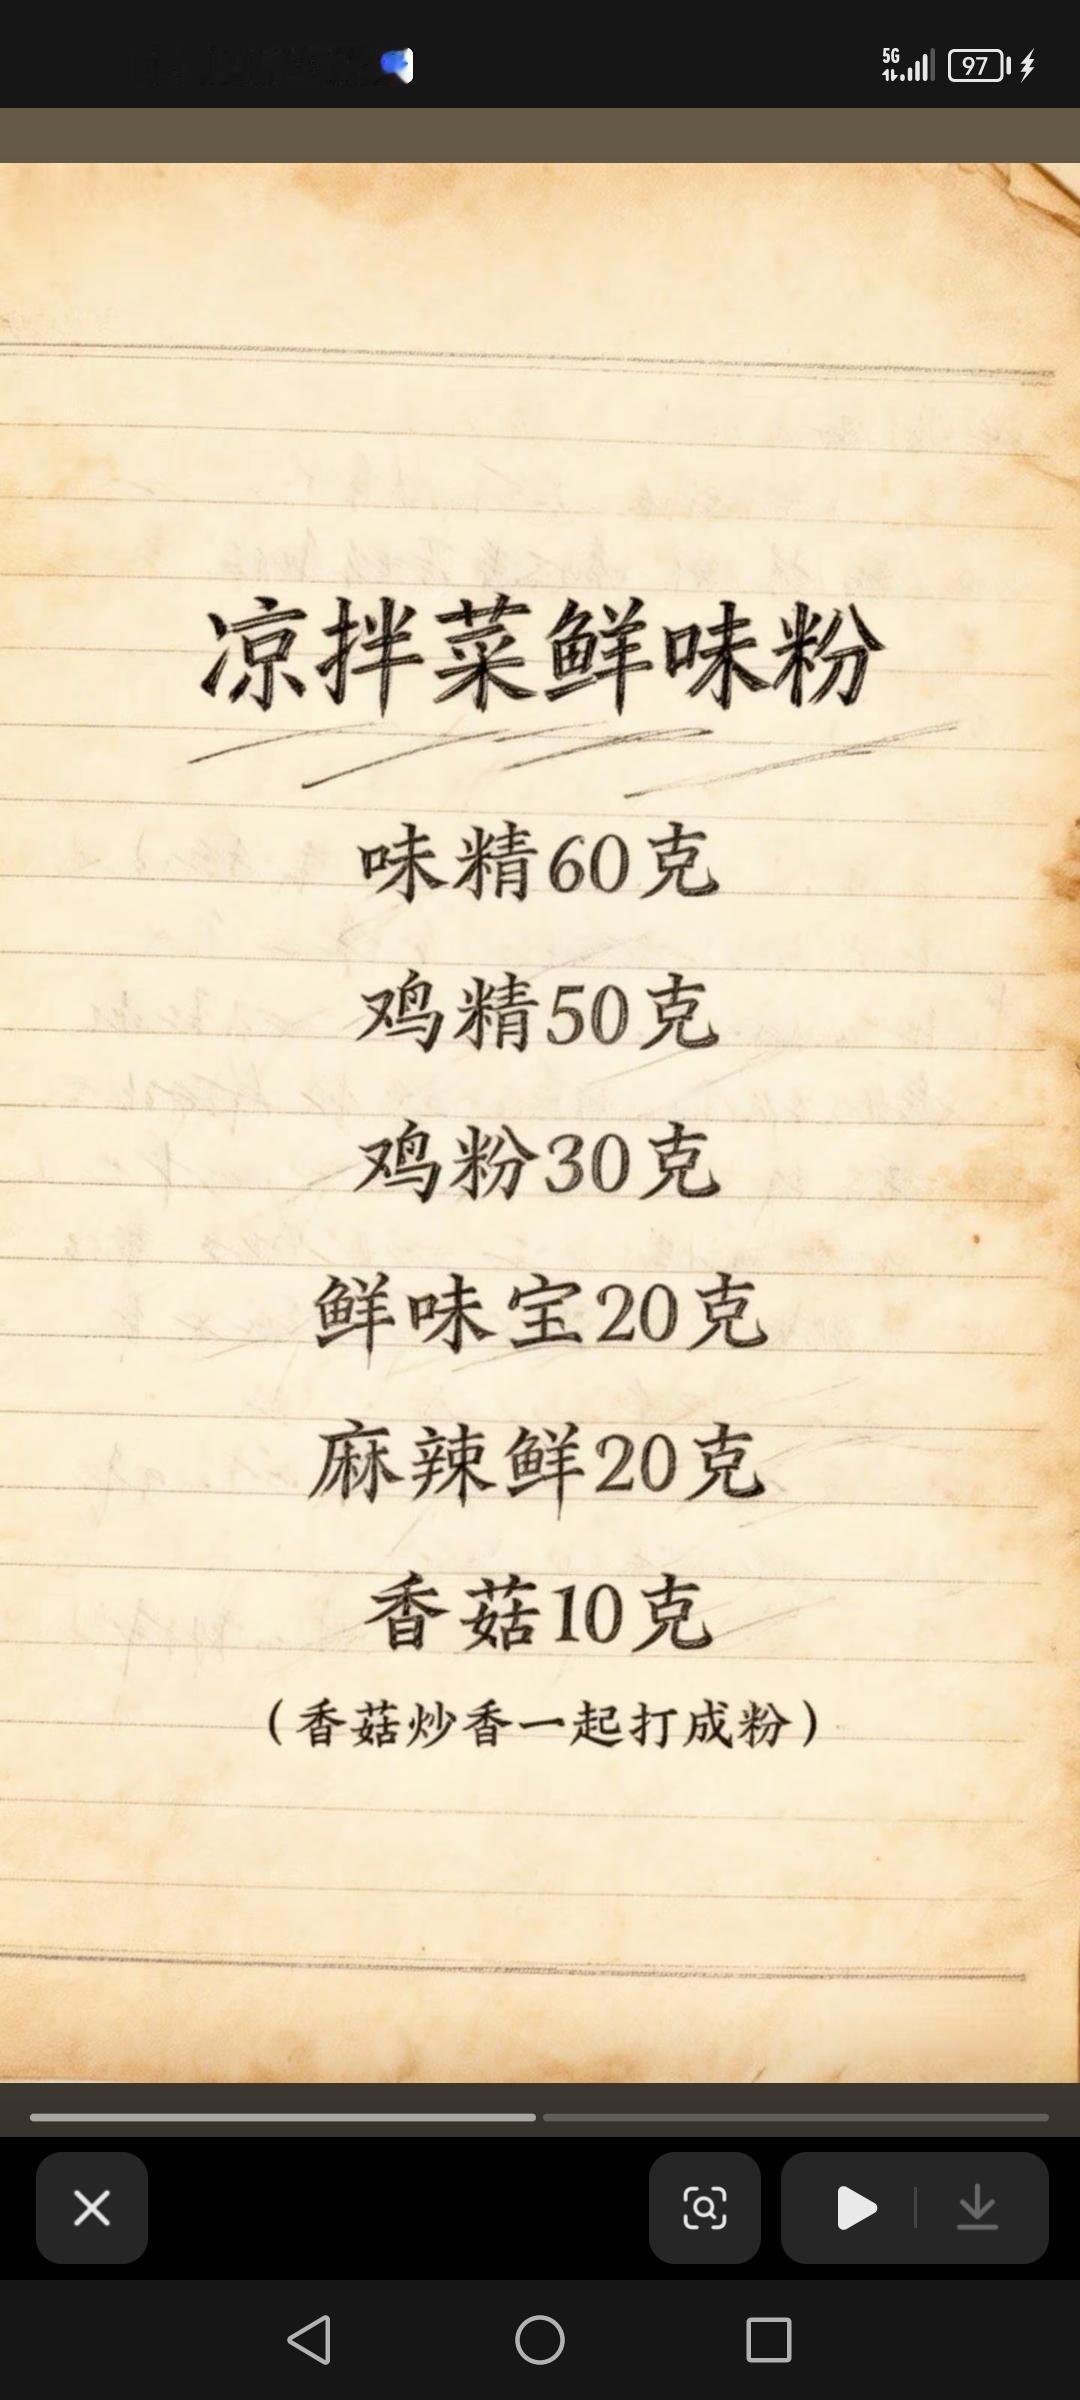 5G 97
凉拌菜鲜味粉
味精60克
鸡精50克
鸡粉30克
鲜味宝20克
麻辣鲜20克
香菇10克
（香菇炒香一起打成粉）